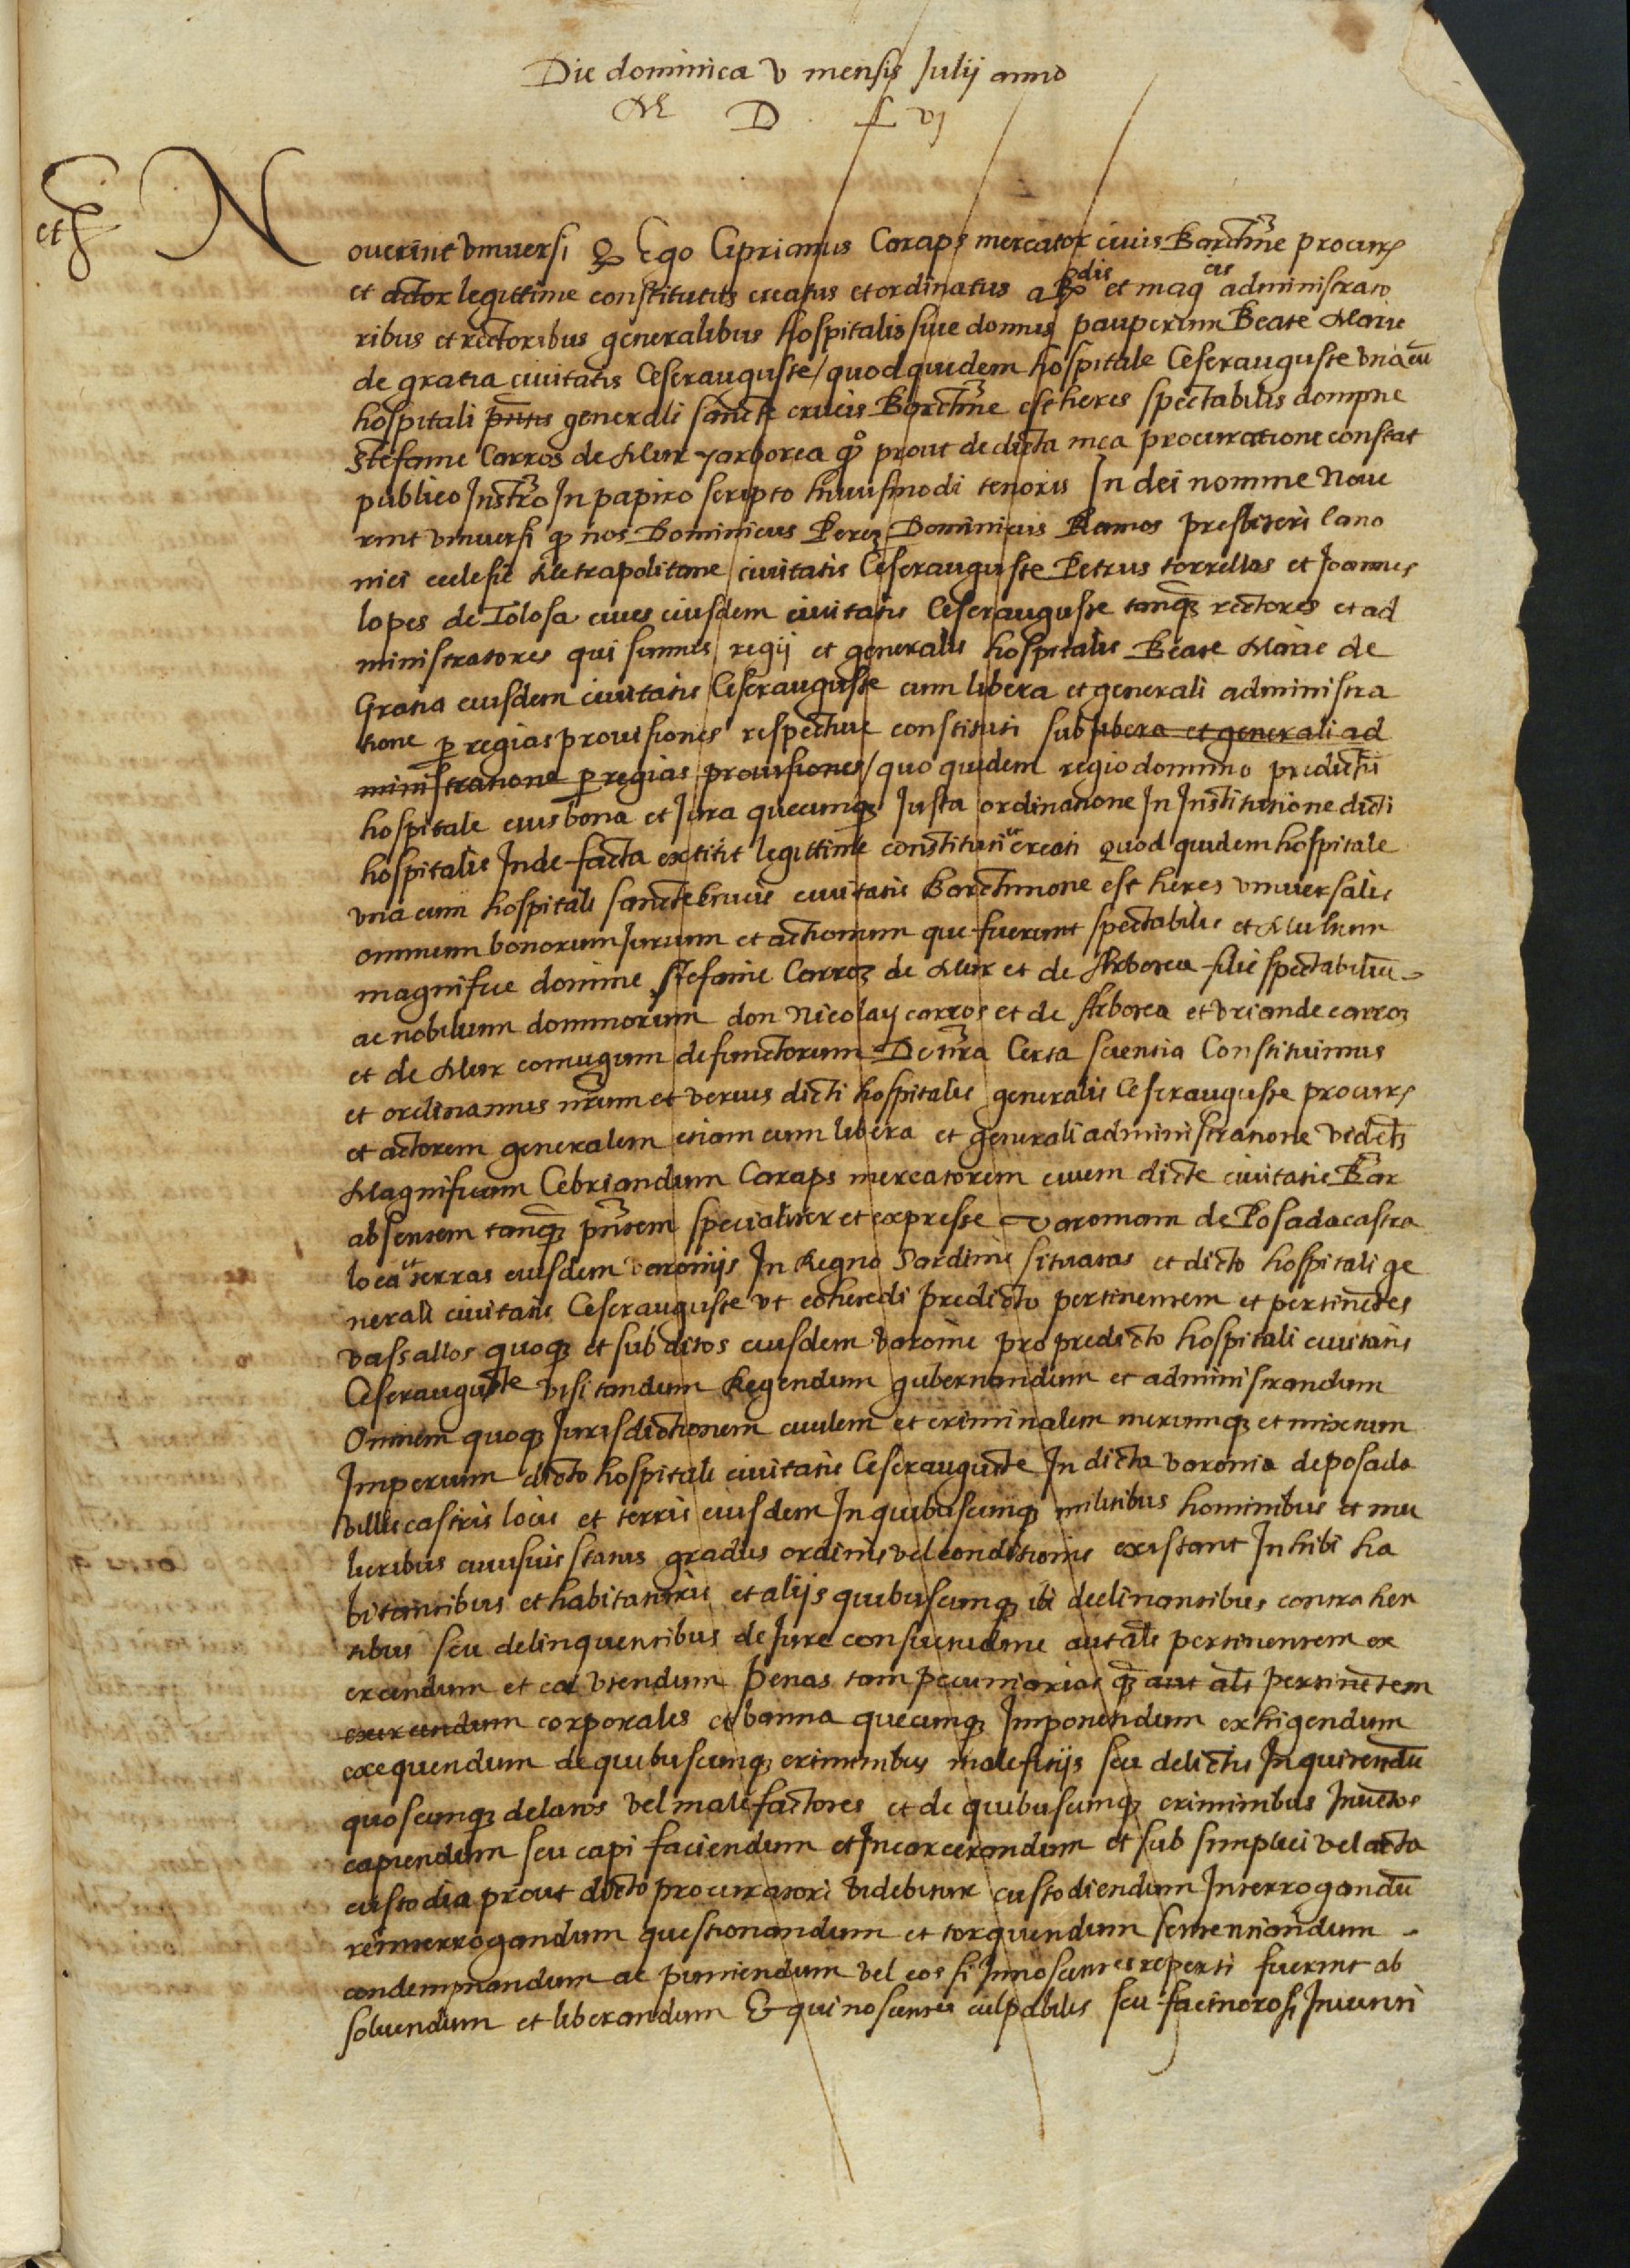 Die dominica v mensis Julij anno
M D L vj
et
Noverint universi q Ego Ciprianus Caraps mercator civis Barchne procur
et actor legittime constitutus creatus et ordinatus a Rdis et magcis administrato
ribus et rectoribus generalibus hospitalis sive domus pauperum Beate Marie
de gratia civitatis Cesarauguste / quod quidem hospitale Ceserauguste una cu
hospitali generali sancte crucis Barchne est heres spectabilis dompne
Stefanie Carros de Mur y arborea prout de dicta mea procuratione constat
publico Instro In papiro scripto huiusmodi tenoris In dei nomine Nove
rint universi q nos Dominicus Perez Dominicus Ramos presbiteri Cano
nici eclesie Metrapolitane civitatis Ceserauguste Petrus torrellas et Joannes
lopes de Tolosa cives eiusdem civitatis Ceserauguste tanq rectores et ad
ministratores qui sumus regij et generalis hospitalis Beate Marie de
Gratia eiusdem civitatis Ceserauguste cum libera et generali administra
tione p regias provisiones respective constituti sub libera et generali ad
ministratione p regias provisiones / quo quidem regio domino predicti
hospitale eius bona et Jura quecunq Justa ordinatione In Institutione dicti
hospitalis Inde facta extitit legittime constituti et creati quod quidem hospitale
una cum hospitali sancte Crucis civitatis Barchinone est heres universalis
omnium bonorum Jurium et actionum que fuerunt spectabilis et Multum
magnifice domine Stefanie Carroz de Mur et de Arborea filie spectabiliu
ac nobilium dominorum don Nicolay carros et de Arborea et briande carroz
et de Mur coniugum defunctorum De nra Certa scientia Constituimus
et ordinamus nrum et verius dicti hospitalis generalis Ceserauguste procur
et actorem generalem etiam cum libera et generali administratione videlt
Magnificum Cebriandum Caraps mercatorem civem dicte civitatis Bar
absentem tanq pntem specialiter et expresse varoniam de Posada castra
loca et terras eiusdem varonijs In Regno Sardinie situatas et dicto hospitali ge
nerali civitatis Ceserauguste ut coheredi predicto pertinentem et pertinetes
vassallos quoq et subditos eiusdem varonie pro predicto hospitali civitatis
Ceserauguste visitandum Regendum gubernandum et administrandum
Omnem quoq Jurisdictionem civilem et criminalem merumq et mixtum
Imperium dicto hospitali civitatis Ceserauguste In dicta varonia de posada
villis castris locis et terris eiusdem In quibuscunq militibus hominibus et mu
lieribus cuiusvis status gradus ordinis vel conditionis existant In hibi ha
bitantibus et habitaturis et alijs quibuscunq ibi declinantibus contra hen
tibus seu delinquentibus de Jure consuetudine aut als pertinentem ex
ercendum et ea utendum penas tam pecuniarias q aut als pertinetem
exercendum corporales et banna quecunq Imponendum exhigendum
exequendum de quibuscunq criminibus maleficijs seu delictis Inquirendu
quoscunq delatos vel malefactores et de quibuscunq criminibus Inuetos
capiendum seu capi faciendum et Incarcerandum et sub simplici vel arcta
custodia prout dicto procuratori videbitur custodiendum Interrogandu
reinterrogandum questionandum et torquendum sentenciandum
condempnandum ac puniendum vel eos si Innoscentes reperti fuerint ab
solvendum et liberandum Et qui noscentes culpabiles seu facinorosi Inventi